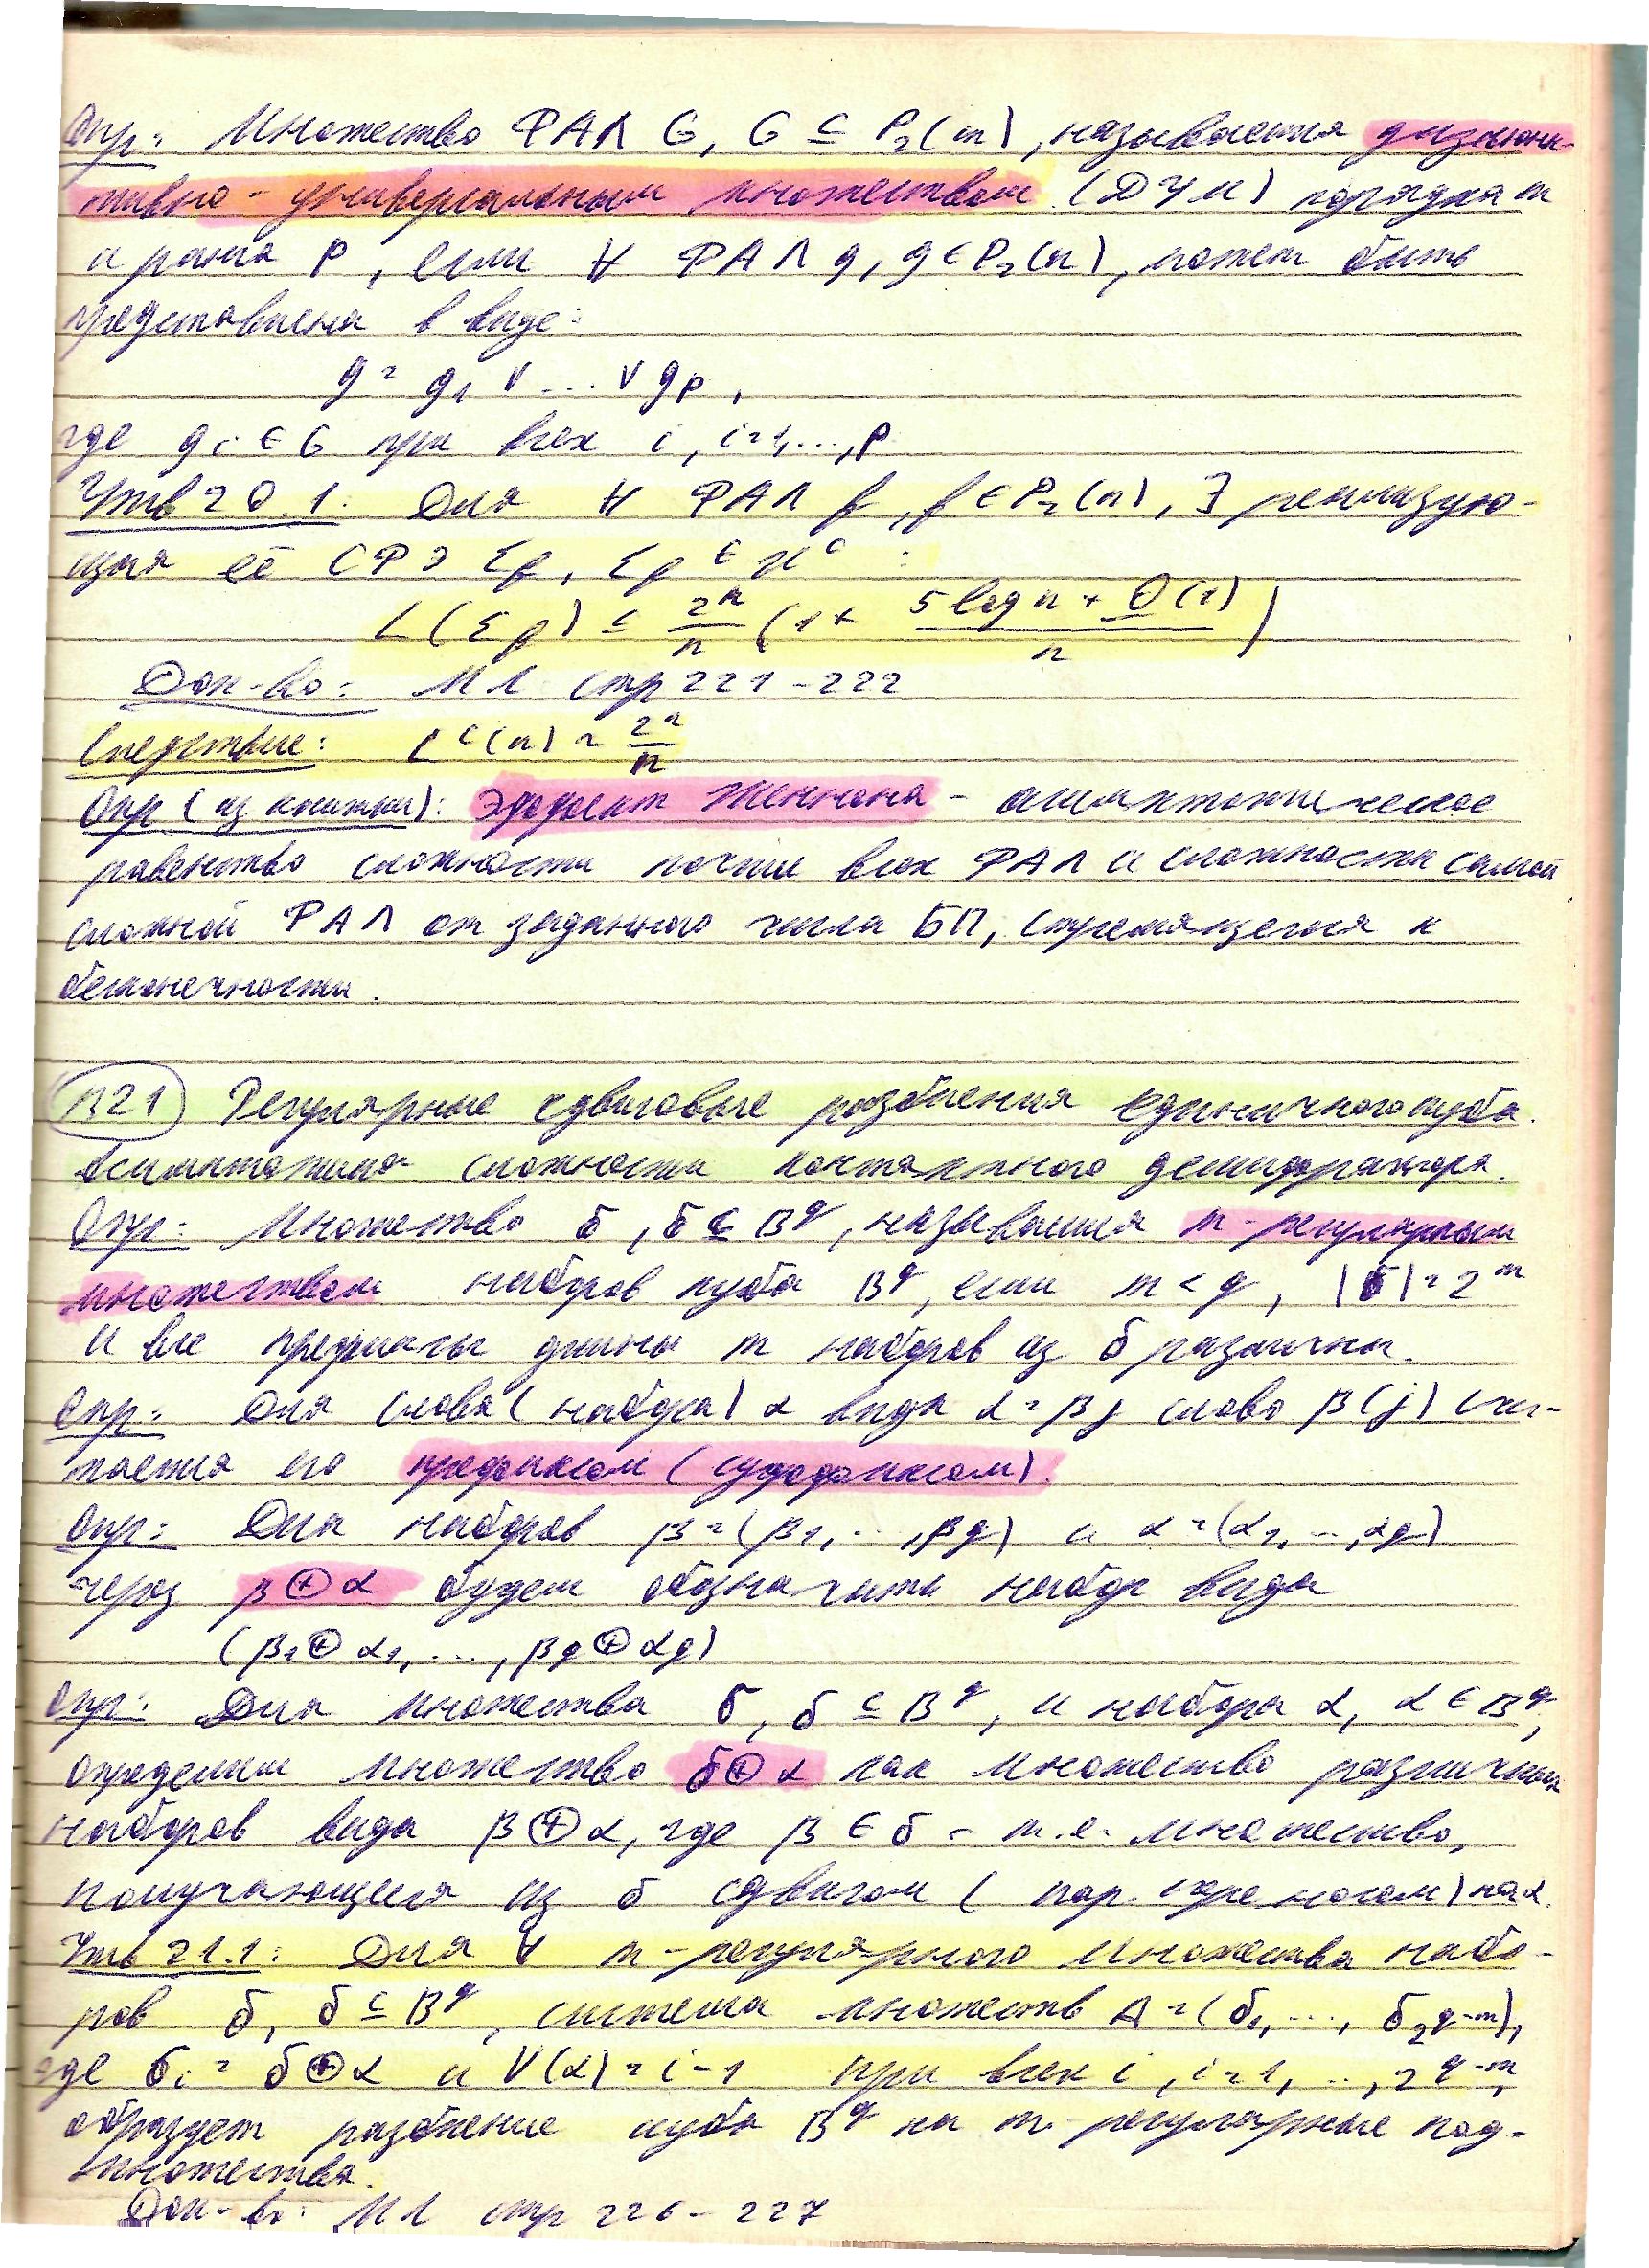 Опр: Множество ФАЛ G, G ⊆ P₂(m), называется дизъюнк-
тивно-универсальным множеством (ДУМ) порядка m
и ранга p, если ∀ ФАЛ g, g ∈ P₂(m), может быть
представлена в виде:
g = g₁ ∨ ... ∨ gₚ,
где gᵢ ∈ G при всех i, i=1,...,p
Утв 20.1. Для ∀ ФАЛ f, f ∈ P₂(n), ∃ реализую-
щая её СФЭ Σf, Σf ∈ 𝒰ᶜ :
L(Σf) ≤ 2ⁿ/n (1 + (5 log n + O(1))/n)
Док-во: МЛ стр 221-222
Следствие: Lᶜ(n) ~ 2ⁿ/n
Опр (из книжки): Эффект Шеннона - асимптотическое
равенство сложности почти всех ФАЛ и сложности самой
сложной ФАЛ от заданного числа БП, стремящегося к
бесконечности.
В21 Регулярные сдвиговые разбиения единичного куба.
Асимптотика сложности контактного дешифратора.
Опр: Множество δ, δ ⊆ B^q, называется m-регулярным
множеством наборов куба B^q, если m < q, |δ| = 2^m
и все префиксы длины m наборов из δ различны.
Опр: Для слова (набора) α вида α = βγ слово β(γ) счи-
тается его префиксом (суффиксом).
Опр: Для наборов β = (β₁, ..., βq) и α = (α₁, ..., αq)
через β ⊕ α будем обозначать набор вида
(β₁ ⊕ α₁, ..., βq ⊕ αq)
Опр: Для множества δ, δ ⊆ B^q, и набора α, α ∈ B^q,
определим множество δ ⊕ α как множество различных
наборов вида β ⊕ α, где β ∈ δ - т.е. множество,
получающееся из δ сдвигом (пар. переносом) на α.
Утв 21.1: Для ∀ m-регулярного множества набо-
ров δ, δ ⊆ B^q, система множеств Δ = (δ₁, ..., δ_{2^{q-m}}),
где δᵢ = δ ⊕ α и V(α) = i-1 при всех i, i=1, ..., 2^{q-m},
образует разбиение куба B^q на m-регулярные под-
множества.
Док-во: МЛ стр 226-227